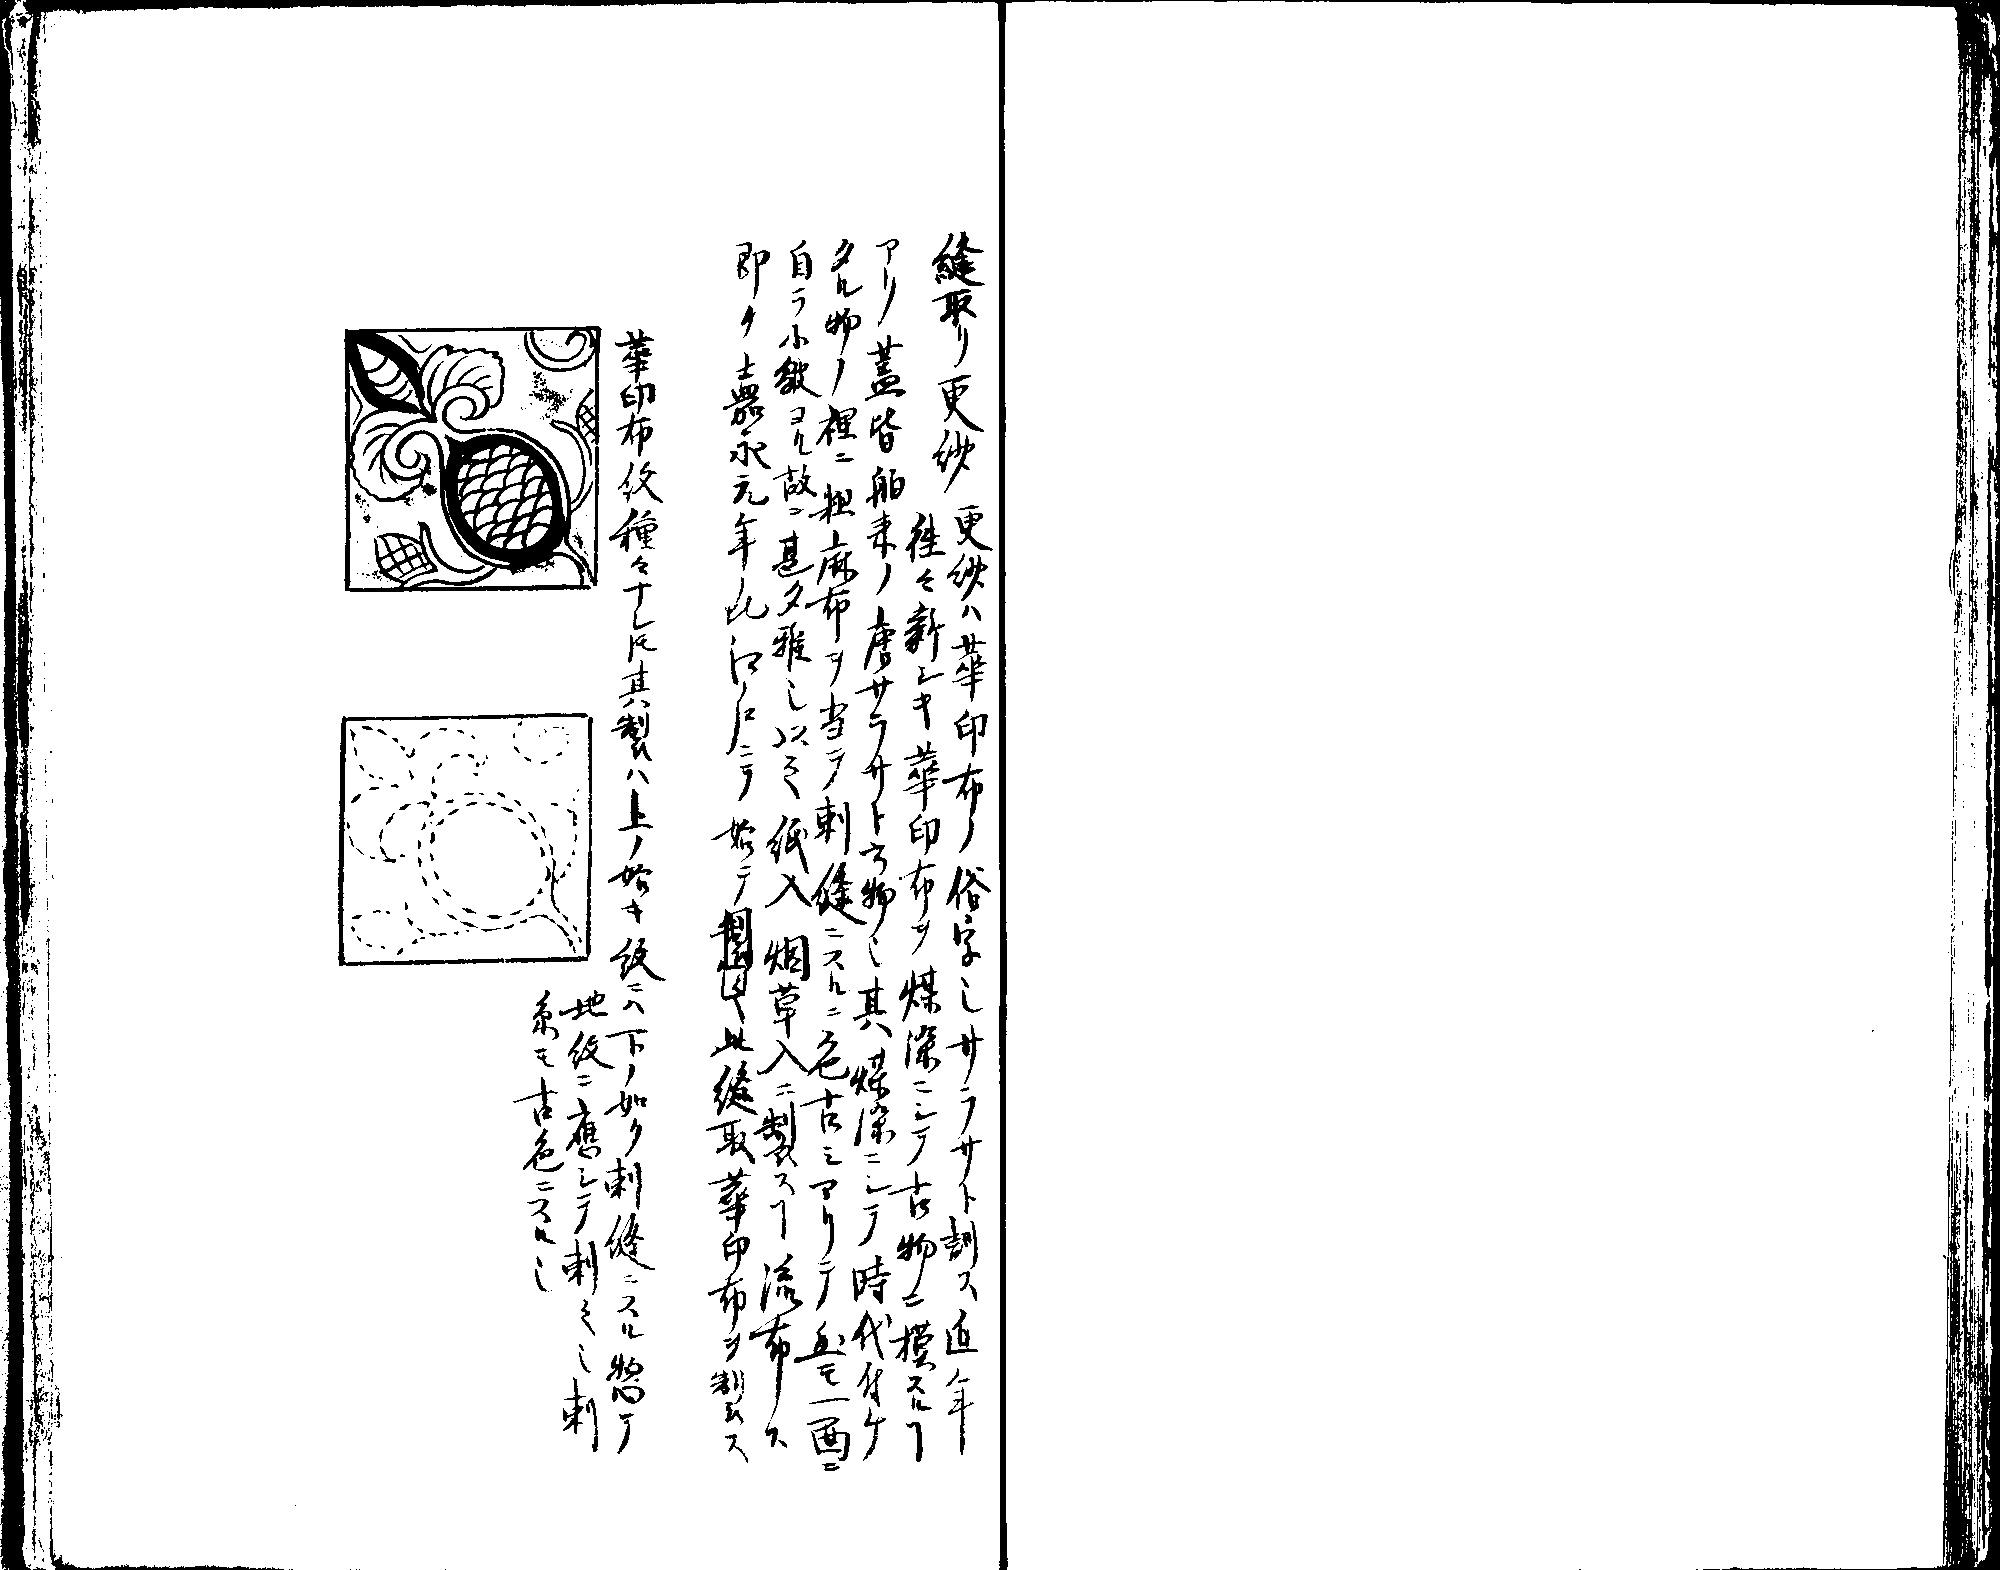 縫取リ更紗 更紗ハ華印布ノ俗字也サラサト訓ス近年
往々新シキ華印布ヲ煤染ニシテ古物ニ模スルヿ
アリ蓋皆舶来ノ唐サラサト云物也其煤染ニシテ時代付ケ
タル物ノ裡ニ粗麻布ヲ当テ刺縫ニスルニ色古ミアリテ且モ一面ニ
自ラ小皺ヨル故ニ甚タ雅也以之紙入烟草入ニ製スヿ流布ス
即チ嘉永元年比江戸ニテ始テ此縫取華印布ヲ製ス
華印布紋種々ナレ𪜈其製ハ上ノ如キ紋ニハ下ノ如ク刺縫ニスル惣テ
地紋ニ應シテ刺之也刺
糸モ古色ニスル也